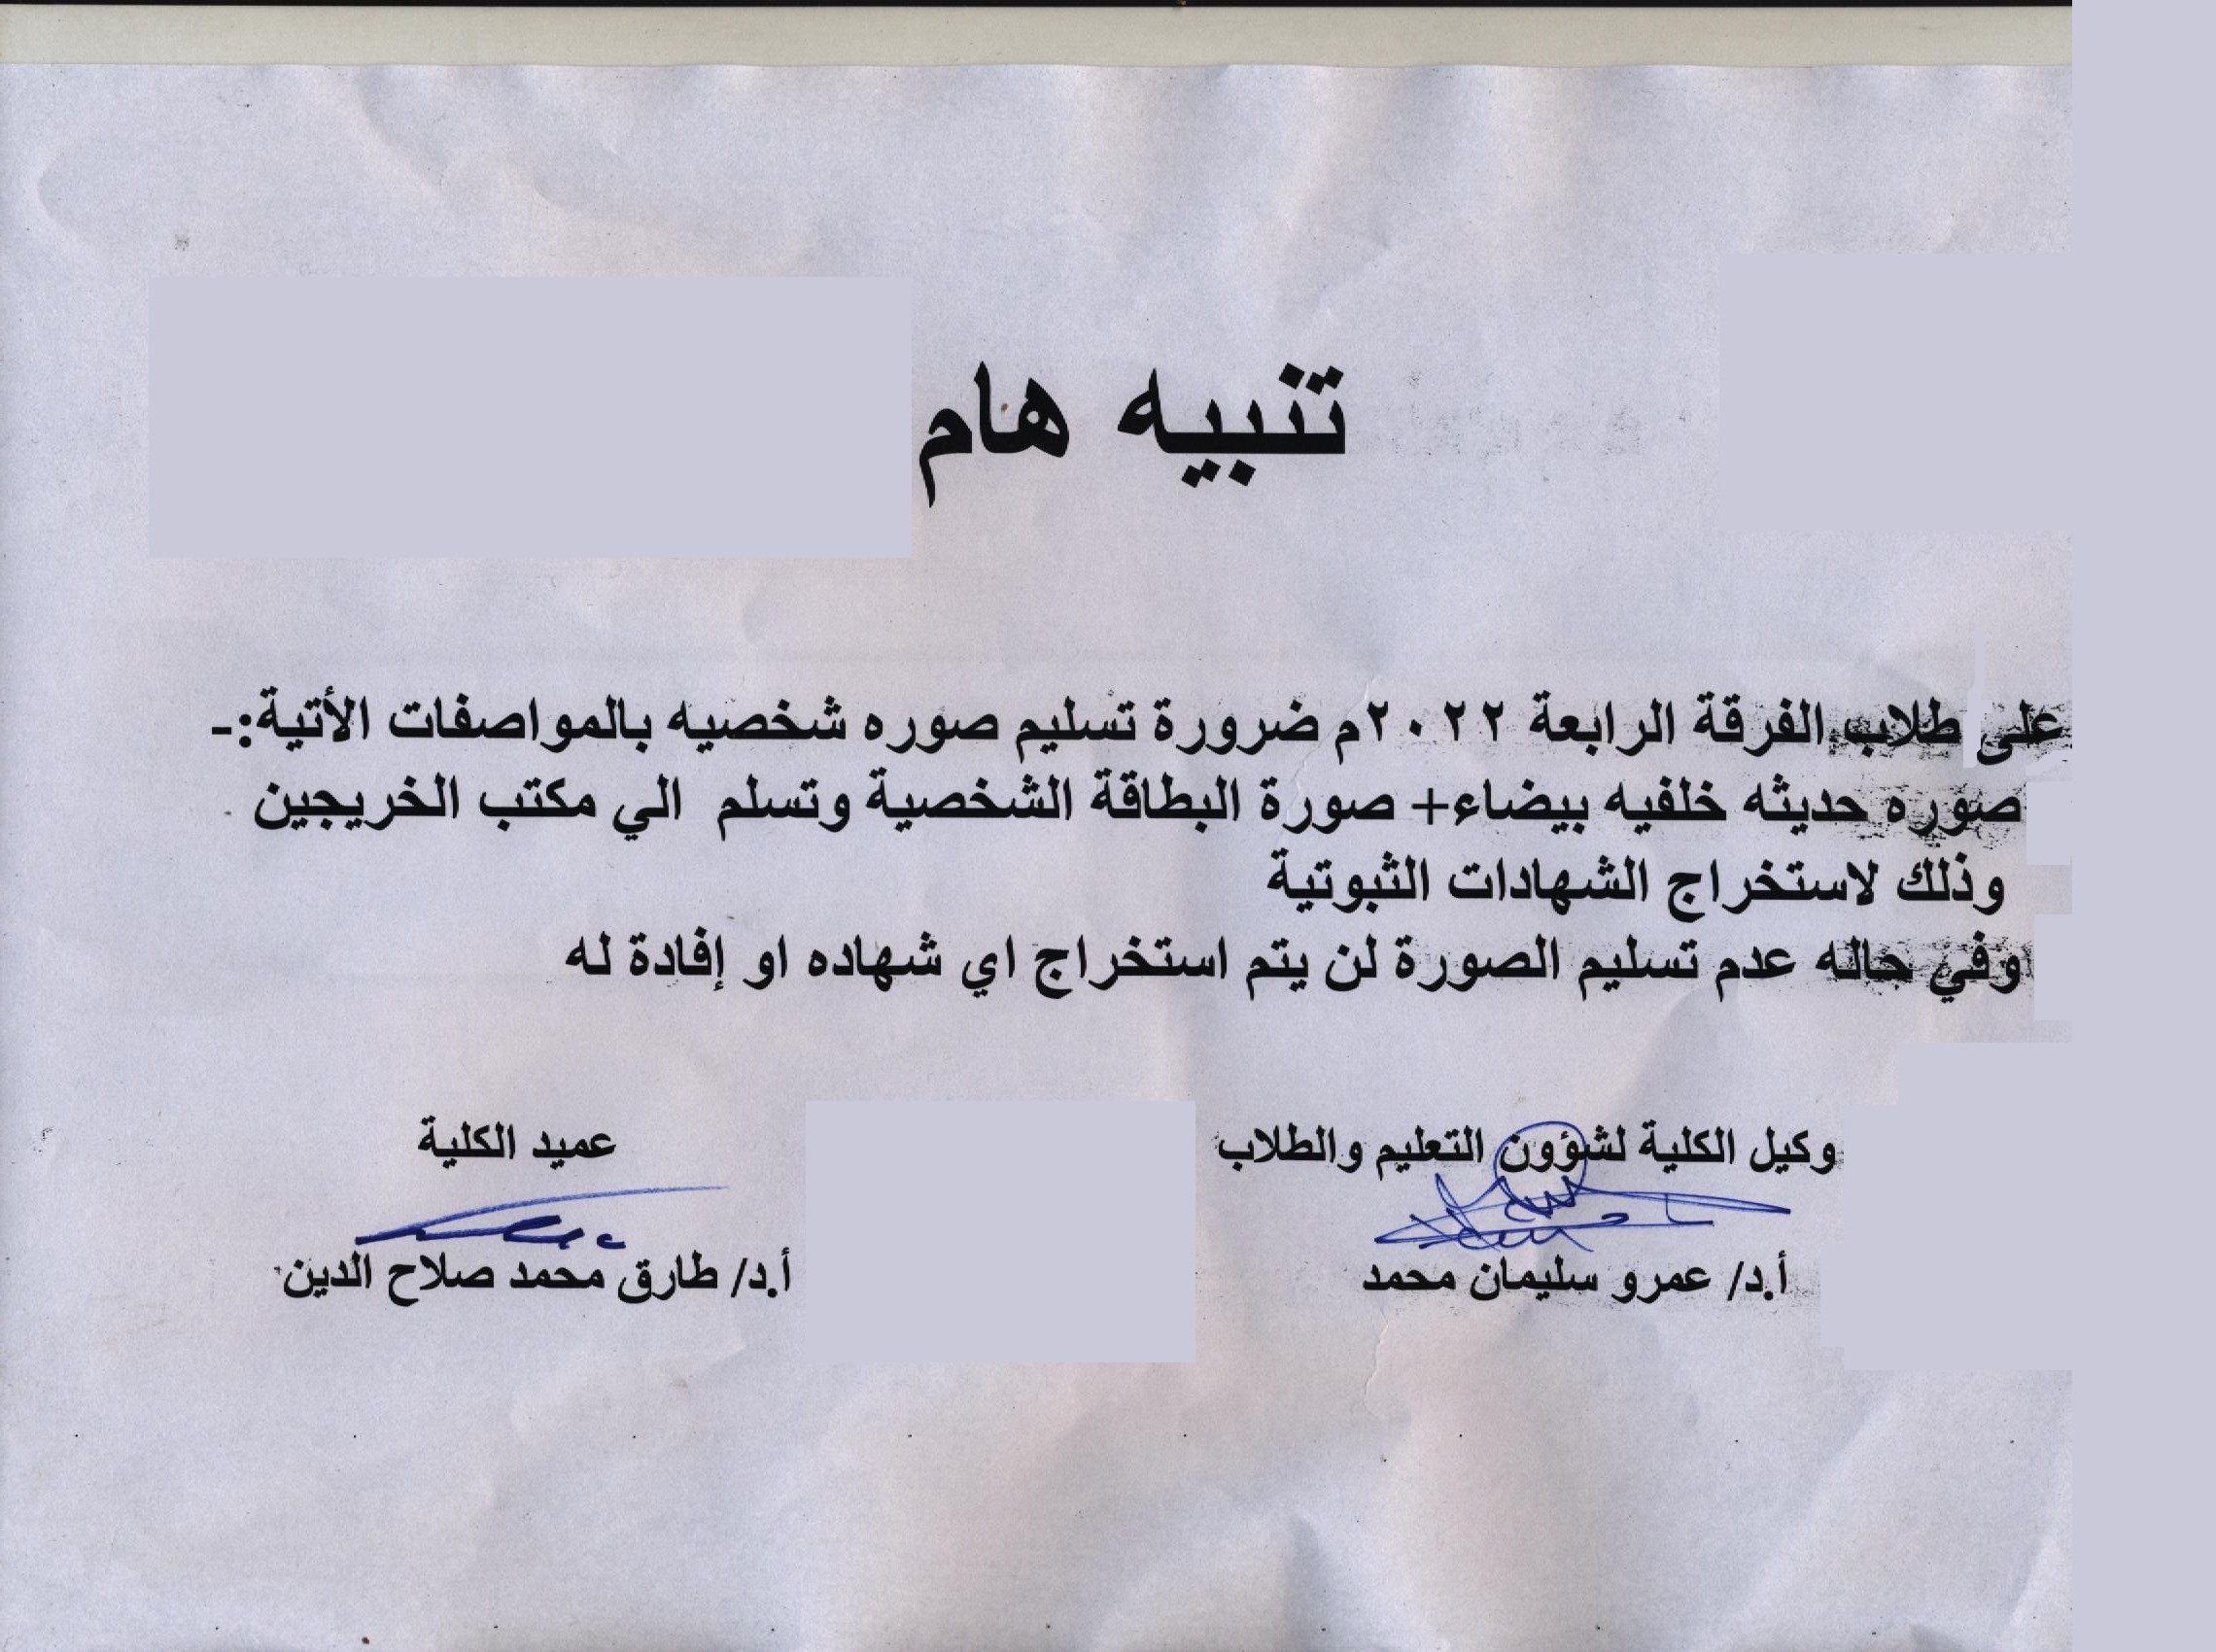 تنبيه هام
على طلاب الفرقة الرابعة ٢٠٢٢م ضرورة تسليم صوره شخصيه بالمواصفات الأتية:-
صوره حديثه خلفيه بيضاء+ صورة البطاقة الشخصية وتسلم الي مكتب الخريجين
وذلك لاستخراج الشهادات الثبوتية
وفي حاله عدم تسليم الصورة لن يتم استخراج اي شهاده او إفادة له
وكيل الكلية لشؤون التعليم والطلاب
عميد الكلية
أ.د/ عمرو سليمان محمد
أ.د/ طارق محمد صلاح الدين